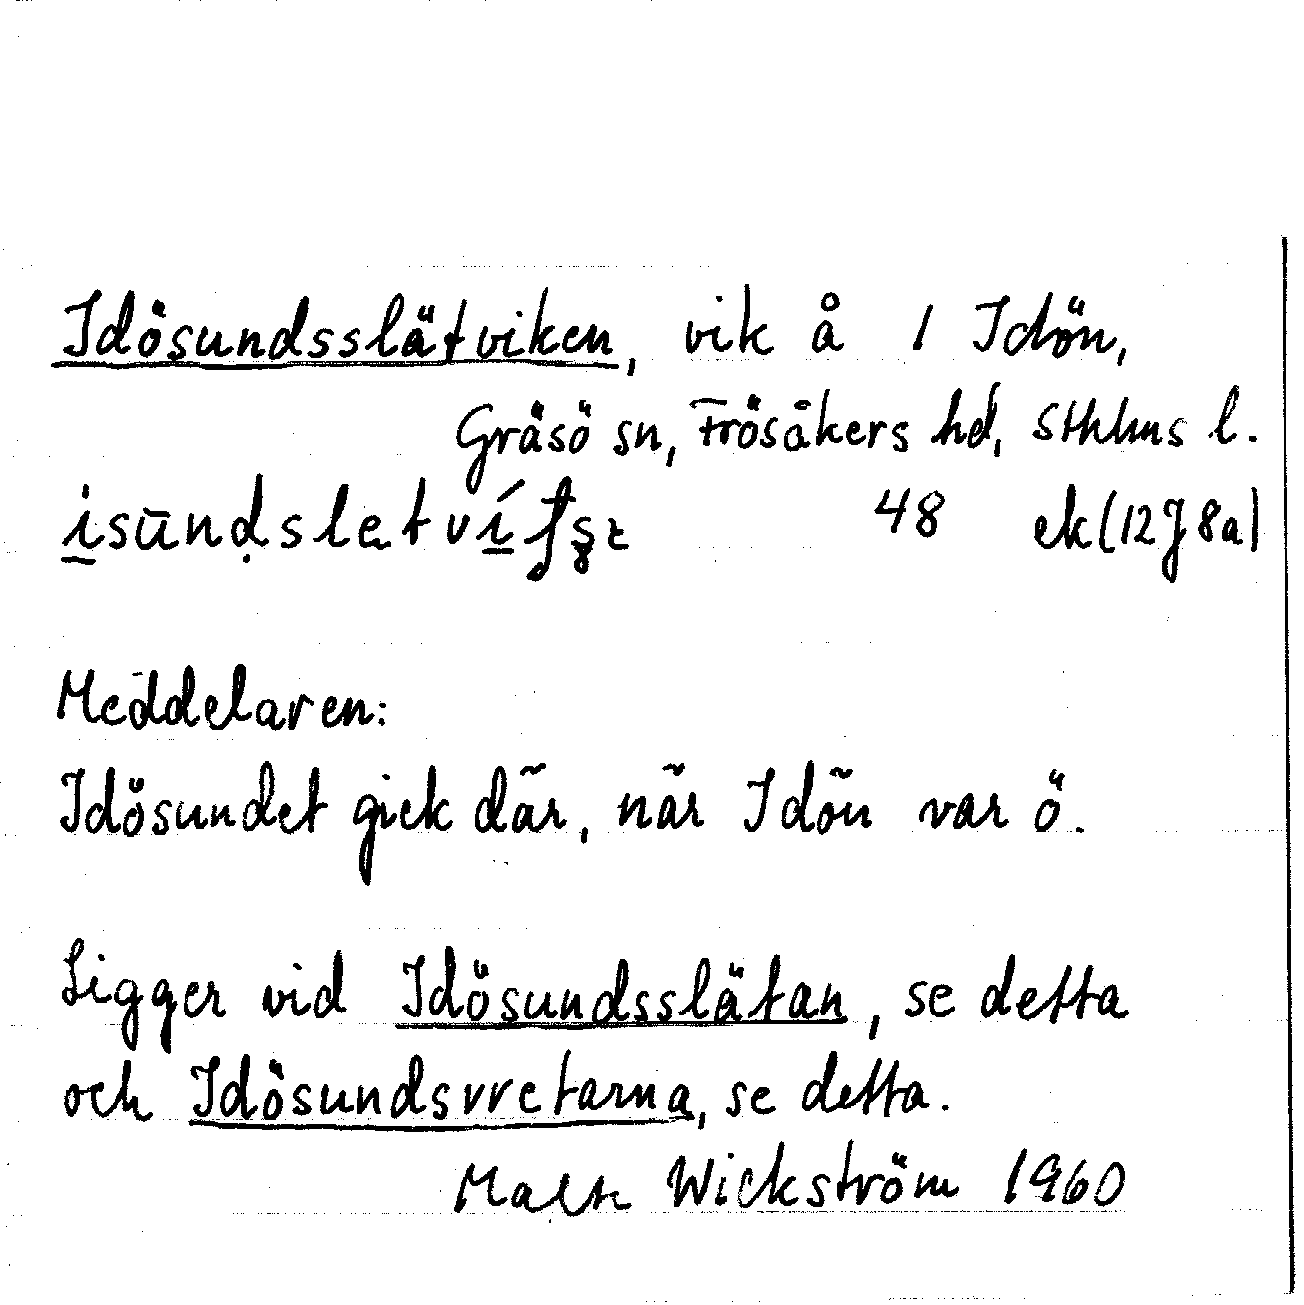 Idösundsslätviken, vik å 1 Idön,
Gräsö sn, Frösåkers hd, Sthlms l.
48 ek (12J 8a)
Meddelaren:
Idösundet gick där, när Idön var ö.
Ligger vid Idösundsslätan, se detta
och Idösundsvretarna, se detta.
Malte Wickström 1960